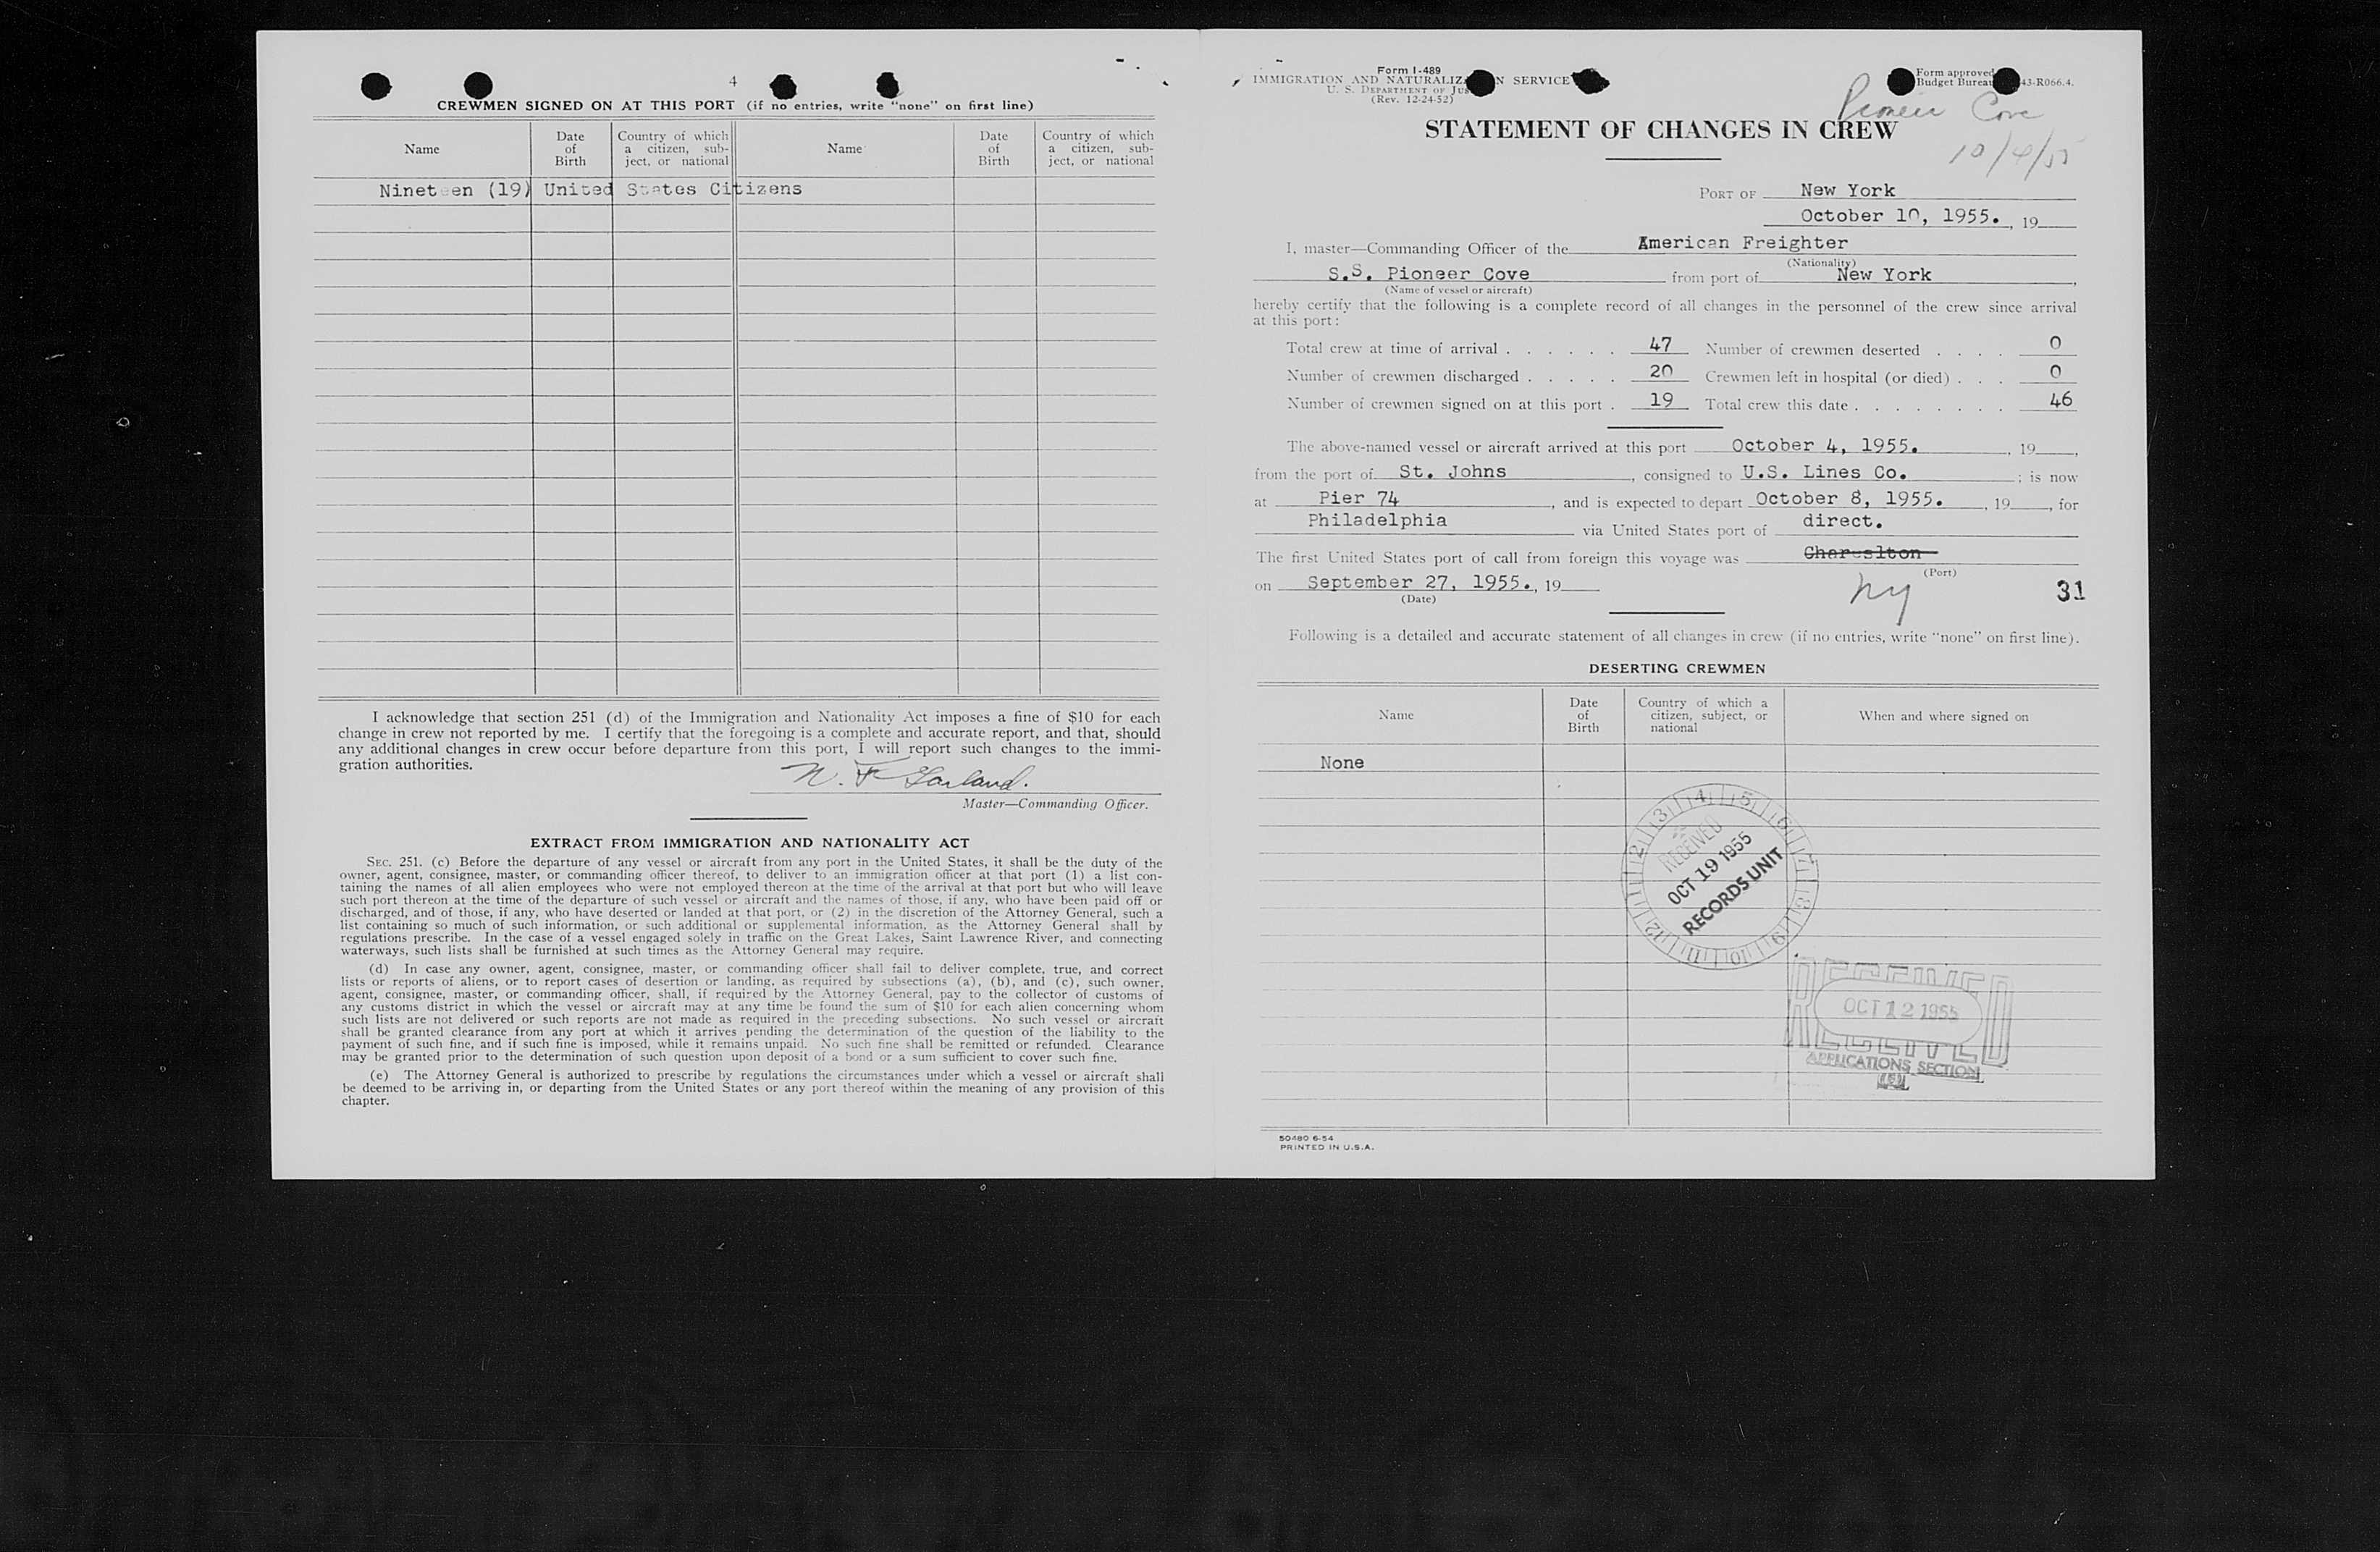 4
CREWMEN SIGNED ON AT THIS PORT (if no entries, write "none" on first line)
Name
Date of Birth
Country of which a citizen, sub-ject, or national
Name
Date of Birth
Country of which a citizen, sub-ject, or national
Nineteen (19) United States Citizens
I acknowledge that section 251 (d) of the Immigration and Nationality Act imposes a fine of $10 for each
change in crew not reported by me. I certify that the foregoing is a complete and accurate report, and that, should
any additional changes in crew occur before departure from this port, I will report such changes to the immi-
gration authorities.
N. F. Garland.
Master—Commanding Officer.
EXTRACT FROM IMMIGRATION AND NATIONALITY ACT
SEC. 251. (c) Before the departure of any vessel or aircraft from any port in the United States, it shall be the duty of the
owner, agent, consignee, master, or commanding officer thereof, to deliver to an immigration officer at that port (1) a list con-
taining the names of all alien employees who were not employed thereon at the time of the arrival at that port but who will leave
such port thereon at the time of the departure of such vessel or aircraft and the names of those, if any, who have been paid off or
discharged, and of those, if any, who have deserted or landed at that port, or (2) in the discretion of the Attorney General, such a
list containing so much of such information, or such additional or supplemental information, as the Attorney General shall by
regulations prescribe. In the case of a vessel engaged solely in traffic on the Great Lakes, Saint Lawrence River, and connecting
waterways, such lists shall be furnished at such times as the Attorney General may require.
(d) In case any owner, agent, consignee, master, or commanding officer shall fail to deliver complete, true, and correct
lists or reports of aliens, or to report cases of desertion or landing, as required by subsections (a), (b), and (c), such owner,
agent, consignee, master, or commanding officer, shall, if required by the Attorney General, pay to the collector of customs of
any customs district in which the vessel or aircraft may at any time be found the sum of $10 for each alien concerning whom
such lists are not delivered or such reports are not made as required in the preceding subsections. No such vessel or aircraft
shall be granted clearance from any port at which it arrives pending the determination of the question of the liability to the
payment of such fine, and if such fine is imposed, while it remains unpaid. No such fine shall be remitted or refunded. Clearance
may be granted prior to the determination of such question upon deposit of a bond or a sum sufficient to cover such fine.
(e) The Attorney General is authorized to prescribe by regulations the circumstances under which a vessel or aircraft shall
be deemed to be arriving in, or departing from the United States or any port thereof within the meaning of any provision of this
chapter.
Form I-489
IMMIGRATION AND NATURALIZ N SERVICE
U. S. DEPARTMENT OF JUS
(Rev. 12-24-52)
Form approved
Budget Bureau 43-R066.4.
Pioneer Cove
10/4/55
STATEMENT OF CHANGES IN CREW
PORT OF New York
October 10, 1955. , 19
I, master—Commanding Officer of the American Freighter
(Nationality)
S.S. Pioneer Cove from port of New York ,
(Name of vessel or aircraft)
hereby certify that the following is a complete record of all changes in the personnel of the crew since arrival
at this port:
Total crew at time of arrival . . . . . . 47 Number of crewmen deserted . . . . 0
Number of crewmen discharged . . . . . 20 Crewmen left in hospital (or died) . . . 0
Number of crewmen signed on at this port . 19 Total crew this date . . . . . . . . 46
The above-named vessel or aircraft arrived at this port October 4, 1955. , 19 ,
from the port of St. Johns , consigned to U.S. Lines Co. ; is now
at Pier 74 , and is expected to depart October 8, 1955. , 19 , for
Philadelphia via United States port of direct.
The first United States port of call from foreign this voyage was Chareslton
(Port)
on September 27, 1955. , 19
(Date)
NY
31
Following is a detailed and accurate statement of all changes in crew (if no entries, write "none" on first line).
DESERTING CREWMEN
Name
Date of Birth
Country of which a citizen, subject, or national
When and where signed on
None
1 2 3 4 5 6 7 8 9 10 11 12
RECEIVED
OCT 19 1955
RECORDS UNIT
RECEIVED
OCT 12 1955
RECEIVED
APPLICATIONS SECTION
50480 6-54
PRINTED IN U.S.A.